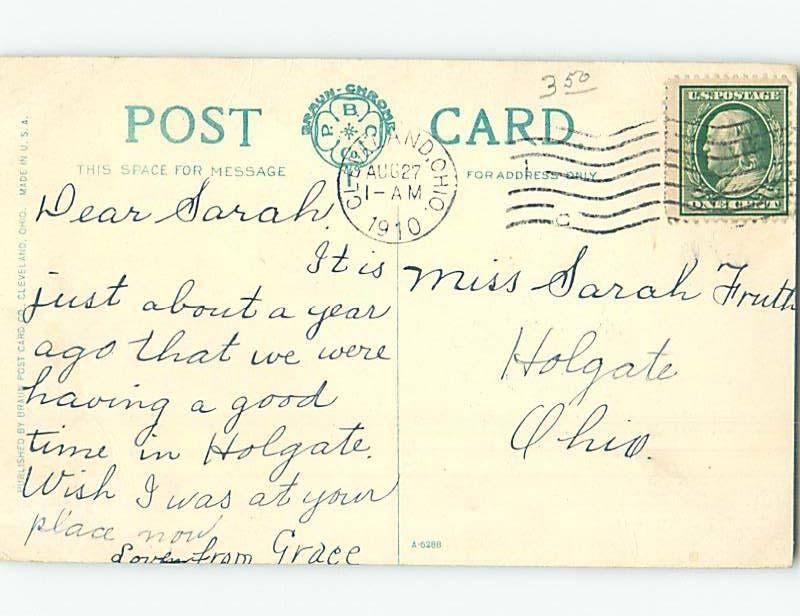 3 50
POST CARD.
BRAUN-CHROME
B. C. P.
THIS SPACE FOR MESSAGE
FOR ADDRESS ONLY
CLEVELAND, OHIO.
AUG 27
1-AM
1910
U.S. POSTAGE
ONE CENT
PUBLISHED BY BRAUN POST CARD CO. CLEVELAND, OHIO. MADE IN U.S.A.
Dear Sarah,
It is
just about a year
ago that we were
having a good
time in Holgate.
Wish I was at your
place now
from Grace
Miss Sarah Fruth
Holgate
Ohio.
A-6288